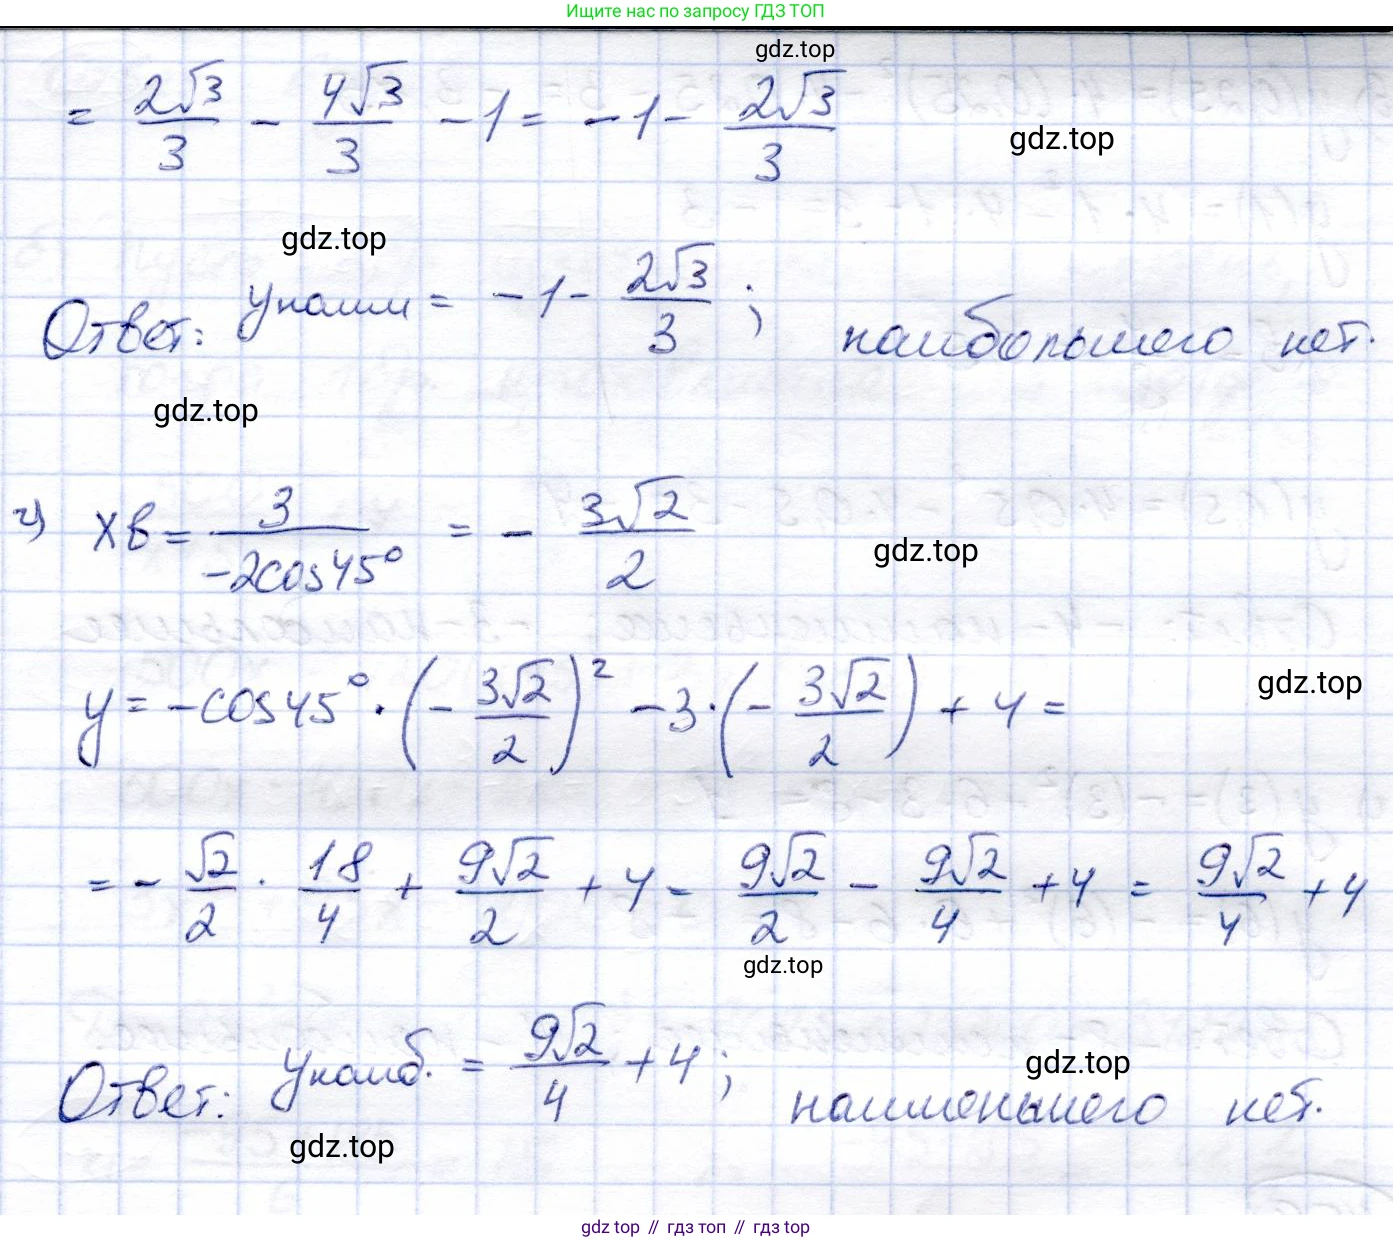 Ищите нас по запросу ГДЗ ТОП
gdz.top
= 2√3/3 - 4√3/3 - 1 = -1 - 2√3/3
gdz.top
gdz.top
Ответ: yнаим = -1 - 2√3/3; наибольшего нет.
gdz.top
г) xв = 3/(-2cos45°) = - 3√2/2
gdz.top
y = -cos45° · (- 3√2/2)² - 3 · (- 3√2/2) + 4 =
gdz.top
= - √2/2 · 18/4 + 9√2/2 + 4 = 9√2/2 - 9√2/4 + 4 = 9√2/4 + 4
gdz.top
Ответ: yнаиб. = 9√2/4 + 4; наименьшего нет.
gdz.top
gdz.top
gdz top // гдз топ // гдз top